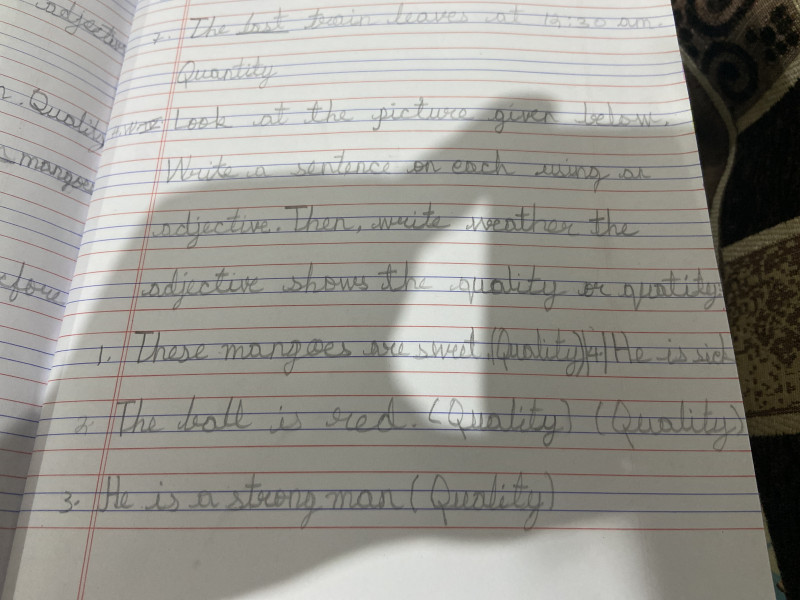 adjective
2. The last train leaves at 12:30 am.
Quantity
n. Quality
Look at the picture given below.
mangoes
Write a sentence on each using an
adjective. Then, write weather the
efore
adjective shows the quality or quatity.
1. These mangoes are sweet. (Quality) 4. He is sick
2. The ball is red. (Quality) (Quality)
3. He is a strong man (Quality)